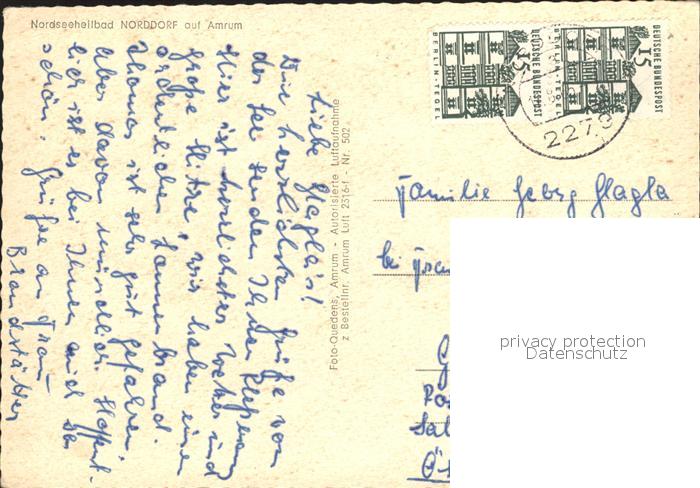 Nordseeheilbad NORDDORF auf Amrum
Liebe Glagla's!
Die herzlichsten Grüße von
der See senden Ihnen
Hier ist herrliches Wetter und
große Hitze, wir haben einen
ordentlichen Sonnenbrand.
Thomas ist sehr gut gefahren,
aber davon mündlich. Hoffent-
lich ist es bei Ihnen auch so
schön. Grüße an Frau
Brandstätter
Foto-Quedens, Amrum - Autorisierte Luftaufnahme
z Bestellnr. Amrum Luft 2316-f - Nr. 502
DEUTSCHE BUNDESPOST
15
BERLIN-TEGEL
DEUTSCHE BUNDESPOST
15
BERLIN-TEGEL
2278
Familie Georg Glagla
bei
privacy protection
Datenschutz